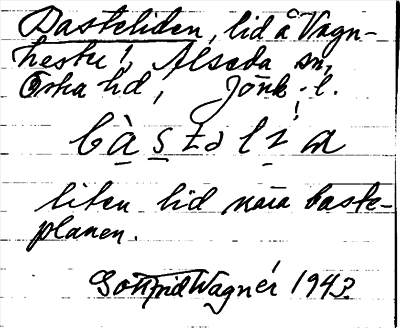 Basteliden, lid å Vagn-
hester, Alseda sn,
Östra hd, Jönk. l.
bàstəlía
liten lid nära baste-
planen.
Gottfrid Wagnér 1943.